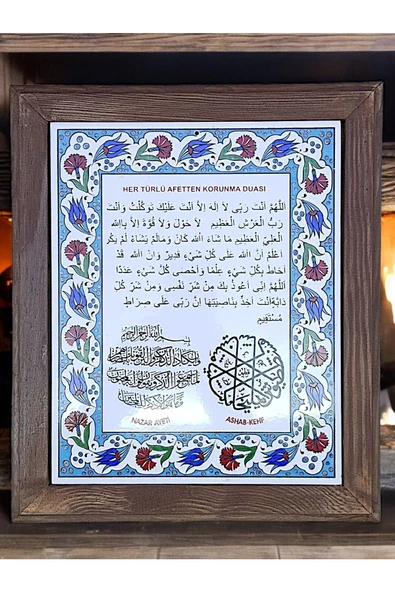 HER TÜRLÜ AFETTEN KORUNMA DUASI
اَللّٰهُمَّ اَنْتَ رَبِّى لَا اِلٰهَ اِلَّا اَنْتَ عَلَيْكَ تَوَكَّلْتُ وَاَنْتَ
رَبُّ الْعَرْشِ الْعَظِيمِ لَا حَوْلَ وَلَا قُوَّةَ اِلَّا بِاللهِ
الْعَلِيِّ الْعَظِيمِ مَا شَاءَ اللهُ كَانَ وَمَالَمْ يَشَاءْ لَمْ يَكُنْ
اَعْلَمُ اَنَّ اللهَ عَلَى كُلِّ شَيْءٍ قَدِيرٌ وَاَنَّ اللهَ قَدْ
اَحَاطَ بِكُلِّ شَيْءٍ عِلْمًا وَاَحْصَى كُلَّ شَيْءٍ عَدَدًا
اَللّٰهُمَّ اِنِّى اَعُوذُ بِكَ مِنْ شَرِّ نَفْسِى وَمِنْ شَرِّ كُلِّ
دَابَّةٍ اَنْتَ اٰخِذٌ بِنَاصِيَتِهَا اِنَّ رَبِّى عَلَى صِرَاطٍ
مُسْتَقِيمٍ
بسم الله الرحمن الرحيم
NAZAR AYETİ
ASHAB-KEHF